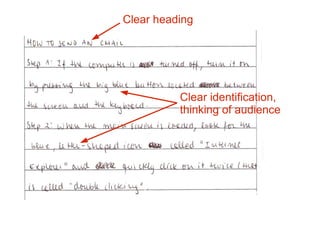 Clear heading
HOW TO SEND AN EMAIL
Step 1: If the computer is turned off, turn it on
by pressing the big blue button located between
the screen and the keyboard.
Clear identification,
thinking of audience
Step 2: When the main screen is loaded, look for the
blue, letter-shaped icon called "Internet
Explorer" and quickly click on it twice (this
is called "double clicking".